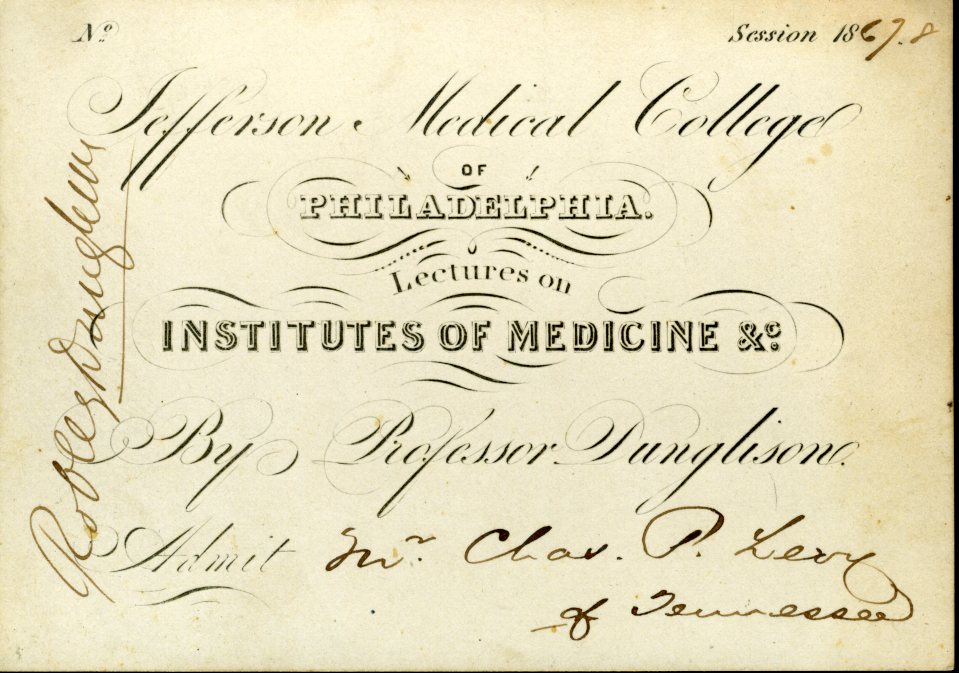 Nº
Session 1867.8
Jefferson Medical College
OF
PHILADELPHIA.
Lectures on
INSTITUTES OF MEDICINE &c.
By Professor Dunglison.
Admit Mr. Chas. P. Levy
of Tennessee
Robley Dunglison